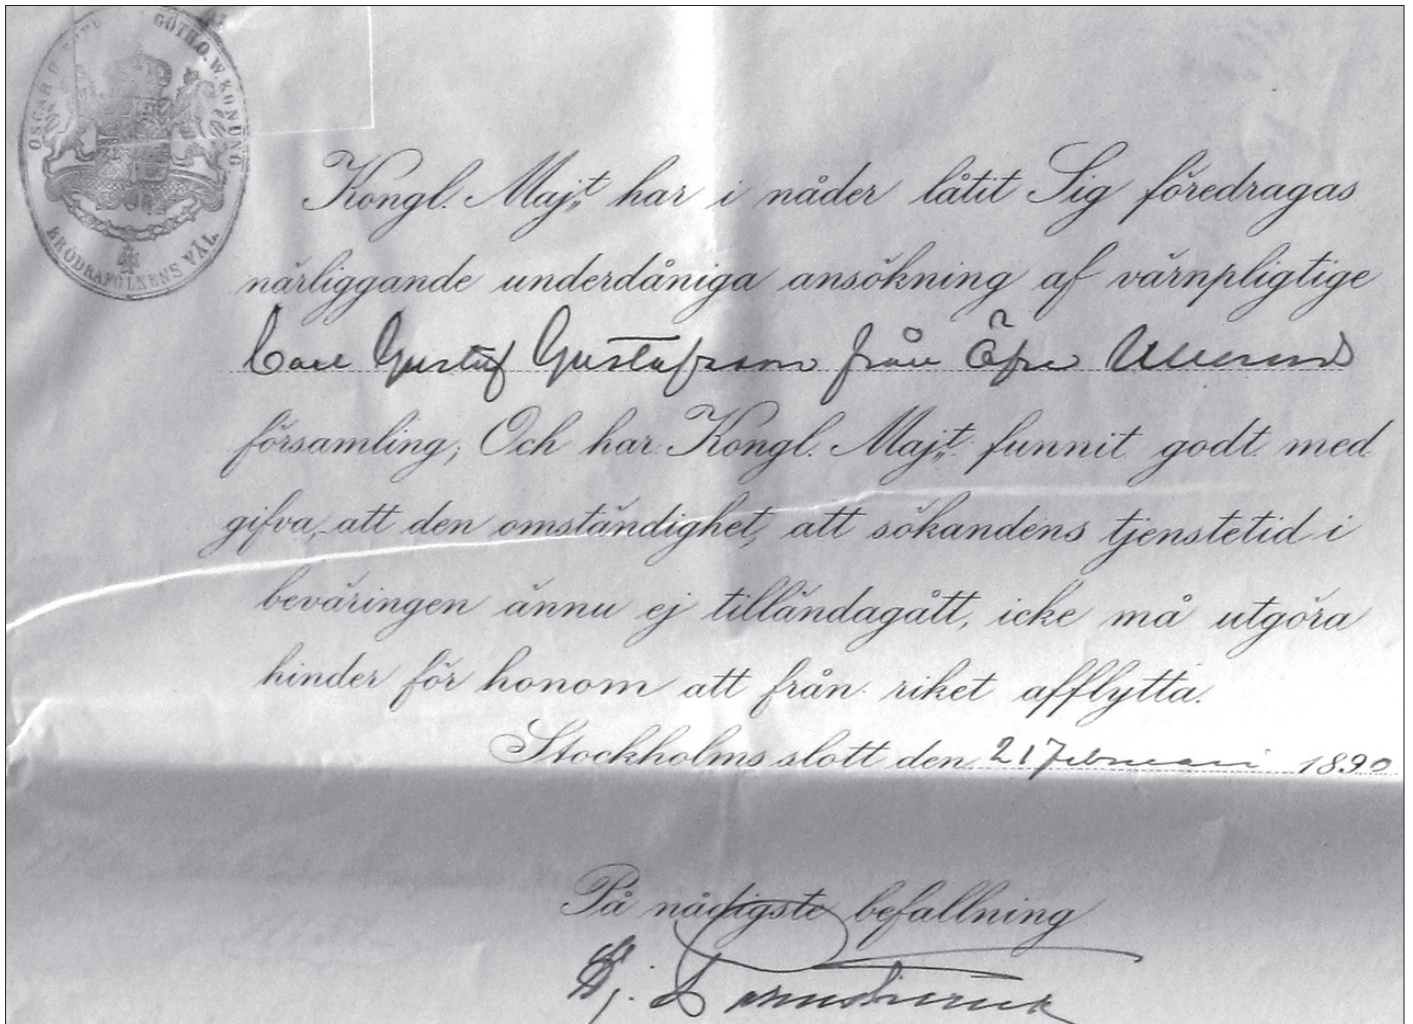 OSCAR II GÖTH.O.W.KONUNG.
BRÖDRAFOLKENS VÄL
Kongl. Maj:t har i nåder låtit Sig föredragas
närliggande underdåniga ansökning af värnpligtige
Carl Gustaf Gustafsson från Öfre Ullerud
församling; Och har Kongl. Maj:t funnit godt med
gifva, att den omständighet, att sökandens tjenstetid i
beväringen ännu ej tilländagått, icke må utgöra
hinder för honom att från riket afflytta.
Stockholms slott den 21 Februari 1890
På nådigste befallning